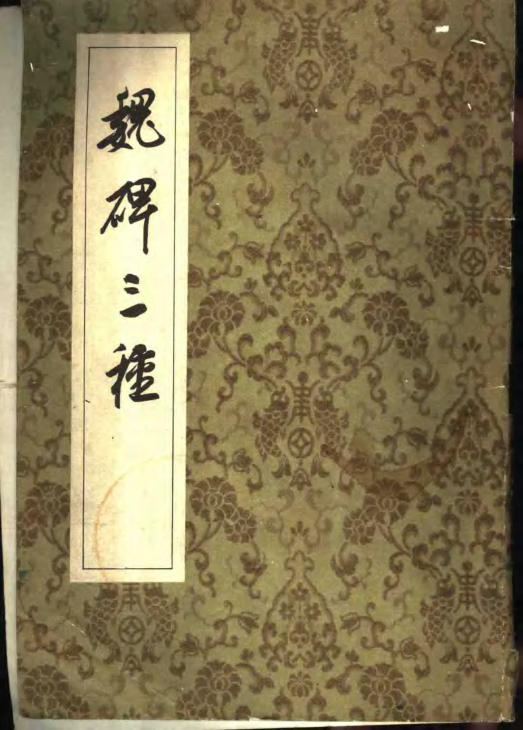 魏碑三種